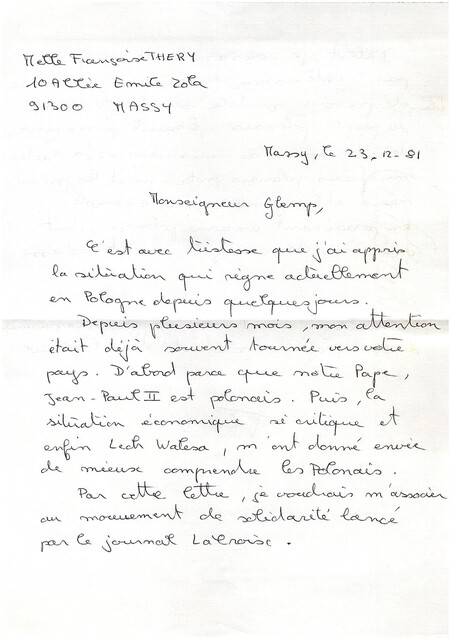 Melle Françoise THERY
10 Allée Emile Zola
91300 MASSY
Massy, le 23-12-81
Monseigneur Glemp,
C'est avec tristesse que j'ai appris
la sitùation qui règne actùellement
en Pologne depuis quelques jours.
Depuis plusieurs mois, mon attention
était déjà souvent tournée vers votre
pays. D'abord parce que notre Pape,
Jean-Paul II est polonais. Puis, la
sitùation économique si critique et
enfin Lech Walesa, m'ont donné envie
de mieux comprendre les Polonais.
Par cette lettre, je voudrais m'associer
au mouvement de solidarité lancé
par le journal La Croix.